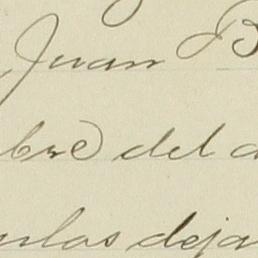 Juan B
bre del a
ulas deja